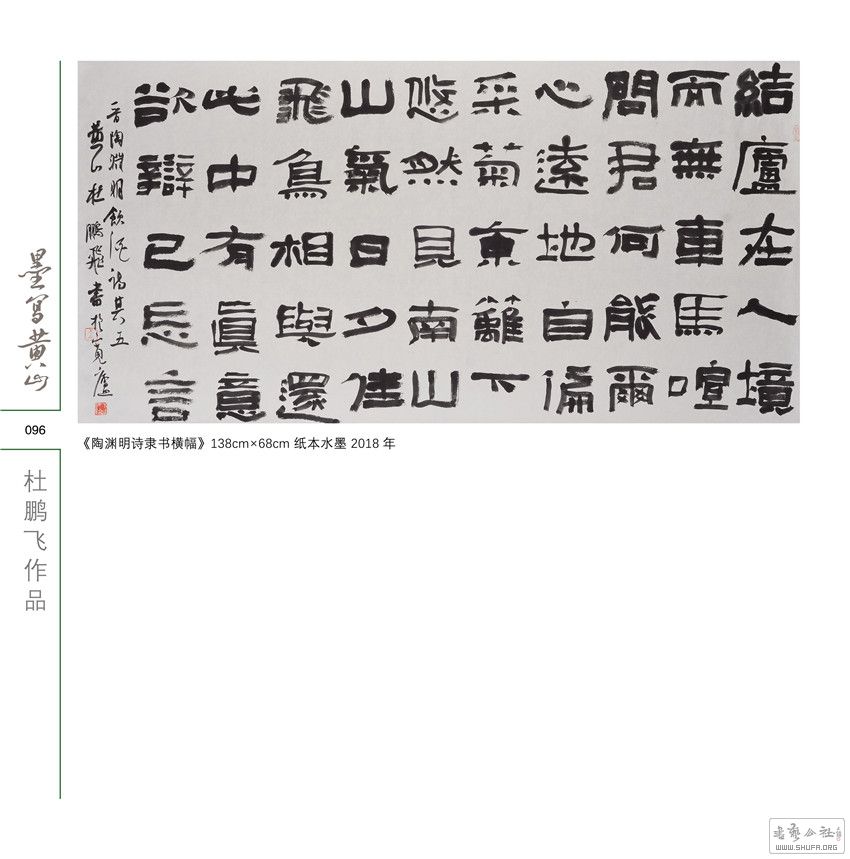 結廬在人境
而無車馬喧
問君何能爾
心遠地自偏
采菊東籬下
悠然見南山
山氣日夕佳
飛鳥相與還
此中有眞意
欲辯已忘言
晋陶淵明飲酒詩其五
黄山杜鵬飛書於寬廬
墨写黄山
096
杜鹏飞作品
《陶渊明诗隶书横幅》138cm×68cm 纸本水墨 2018 年
书艺公社
WWW.SHUFA.ORG